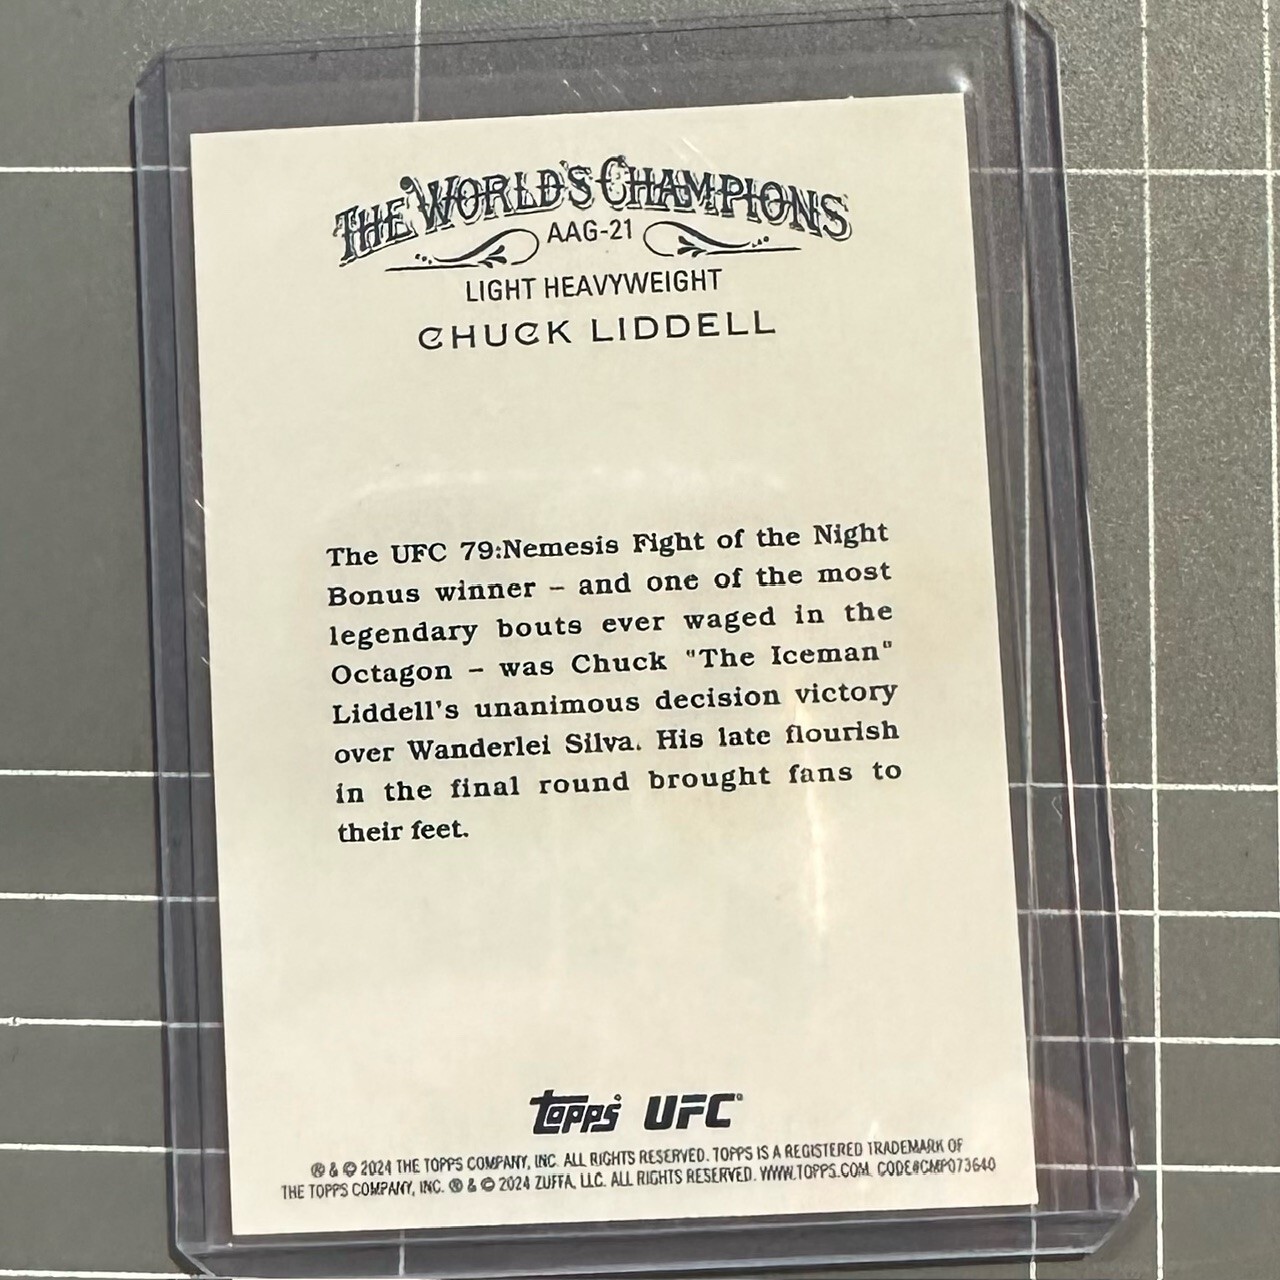 THE WORLD'S CHAMPIONS
AAG-21
LIGHT HEAVYWEIGHT
CHUCK LIDDELL
The UFC 79:Nemesis Fight of the Night
Bonus winner – and one of the most
legendary bouts ever waged in the
Octagon – was Chuck "The Iceman"
Liddell's unanimous decision victory
over Wanderlei Silva. His late flourish
in the final round brought fans to
their feet.
topps UFC®
® & © 2024 THE TOPPS COMPANY, INC. ALL RIGHTS RESERVED. TOPPS IS A REGISTERED TRADEMARK OF
THE TOPPS COMPANY, INC. ® & © 2024 ZUFFA, LLC. ALL RIGHTS RESERVED. WWW.TOPPS.COM. CODE#CMP073640